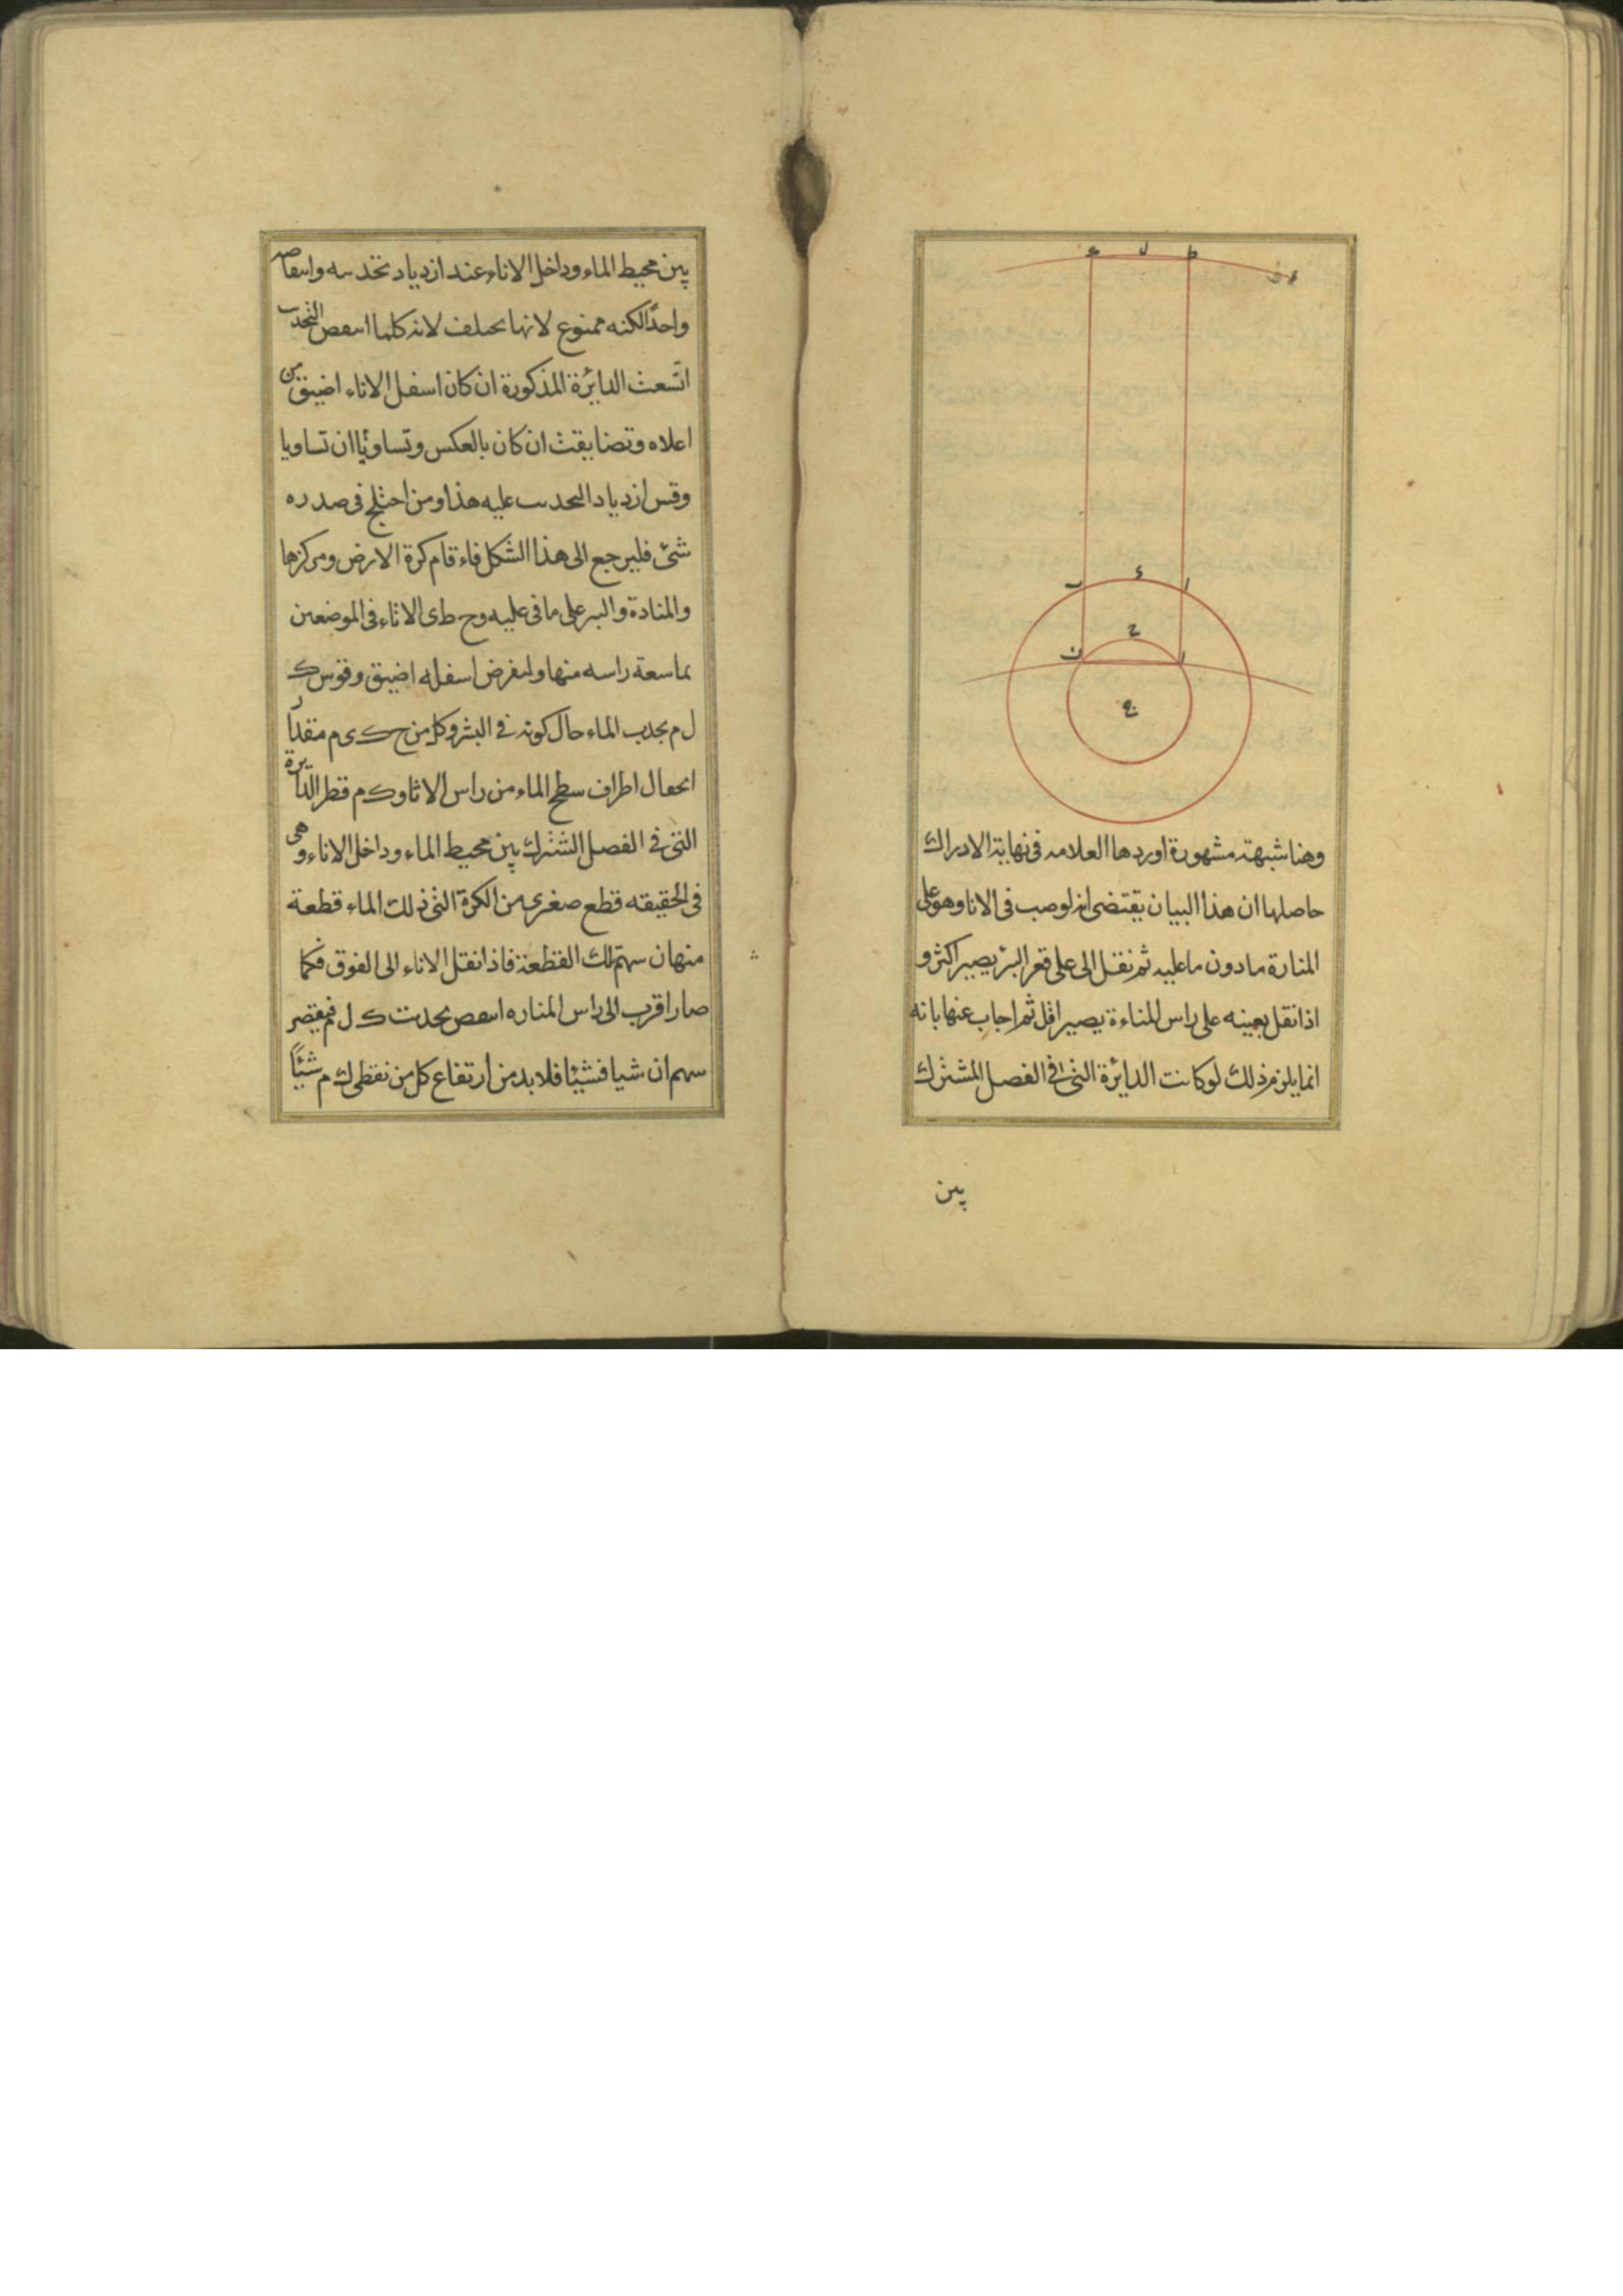 ط ل ع
ب ء ا
ح
ن ا
ج
وهنا شبهة مشهورة اوردها العلامه فى نهاية الادراك
حاصلها ان هذا البيان يقتضى انه لوصب فى الانا وهو على
المنارة مادون ماعليه ثم نقل الى على قعر البئر يصير اكثر و
اذا نقل بعينه على راس المناءة يصير اقل ثم اجاب عنها بانه
انما يلزم ذلك لو كانت الدايرة التى فى الفصل المشترك
بين
بين محيط الماء وداخل الاناء عند ازدياد تحدبه وانتقاصه
واحدًا لكنه ممنوع لانها تختلف لانه كلما انتقص التحدب
اتسعت الدايرة المذكورة ان كان اسفل الاناء اضيق من
اعلاه وتضايقت ان كان بالعكس وتساويا ان تساويا
وقس ازدياد التحدب عليه هذا ومن احتلج فى صدره
شئ فليرجع الى هذا الشكل فاء قام كرة الارض ومركزها
والمنادة والبير على ما فى عليه وح ط ى الاناء فى الموضعين
بما سعة راسه منها ولنفرض اسفله اضيق وقوس ك
ل م تحدب الماء حال كونه فى البئر وكل من ح ك ى م مقدار
انحفال اطراف سطح الماء من راس الانا وك م قطر الدايرة
التى فى الفصل الشترك بين محيط الماء وداخل الاناء وهى
فى الحقيقه قطع صغرى من الكرة التى ذلك الماء قطعة
منها ن سهم تلك القطعة فاذا نقل الاناء الى الفوق فكما
صار اقرب الى راس المناره انتقص تحدب ك ل م فيقصر
سهم ان شيا فشيئا فلا بد من ارتفاع كل من نقطى ك م شيئًا